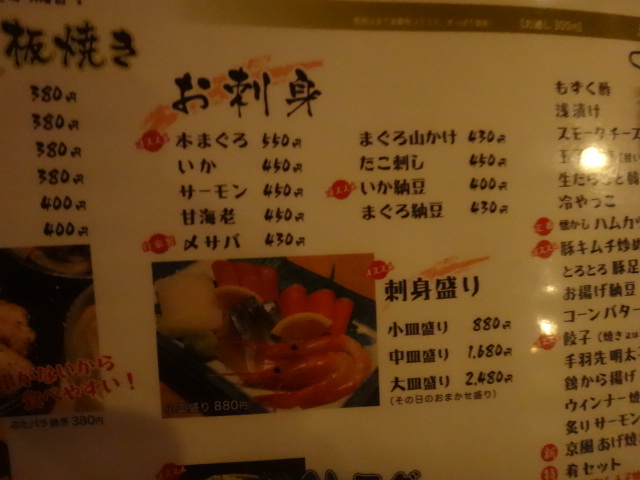 【お通し 300円】
板焼き
380円
380円
380円
380円
400円
400円
お刺身
本まぐろ 550円
いか 450円
サーモン 450円
甘海老 450円
〆サバ 430円
まぐろ山かけ 430円
たこ刺し 450円
オススメ いか納豆 400円
まぐろ納豆 430円
オススメ
刺身盛り
小皿盛り 880円
中皿盛り 1,680円
大皿盛り 2,480円
(その日のおまかせ盛り)
小皿盛り 880円
食べやすい!
ぶたバラ焼き 380円
もずく酢
浅漬け
スモークチーズ
冷やっこ
懐かし ハムカツ
豚キムチ炒め
とろとろ 豚足
お揚げ納豆
コーンバター
餃子
手羽先明太
鶏から揚げ
ウィンナー焼
炙りサーモン
京風あげ焼
肴セット